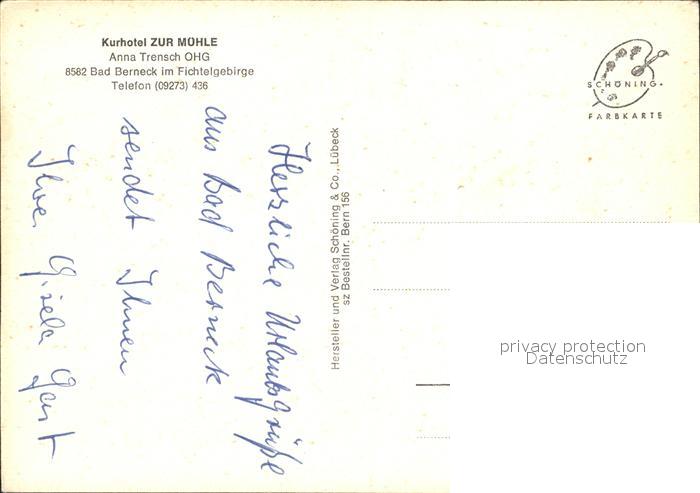 Kurhotel ZUR MÜHLE
Anna Trensch OHG
8582 Bad Berneck im Fichtelgebirge
Telefon (09273) 436
Herzliche Urlaubsgrüße
aus Bad Berneck
sendet Ihnen
Ihre Gisela Gast
Hersteller und Verlag Schöning & Co., Lübeck
sz Bestellnr. Bern 156
SCHÖNING
FARBKARTE
privacy protection
Datenschutz